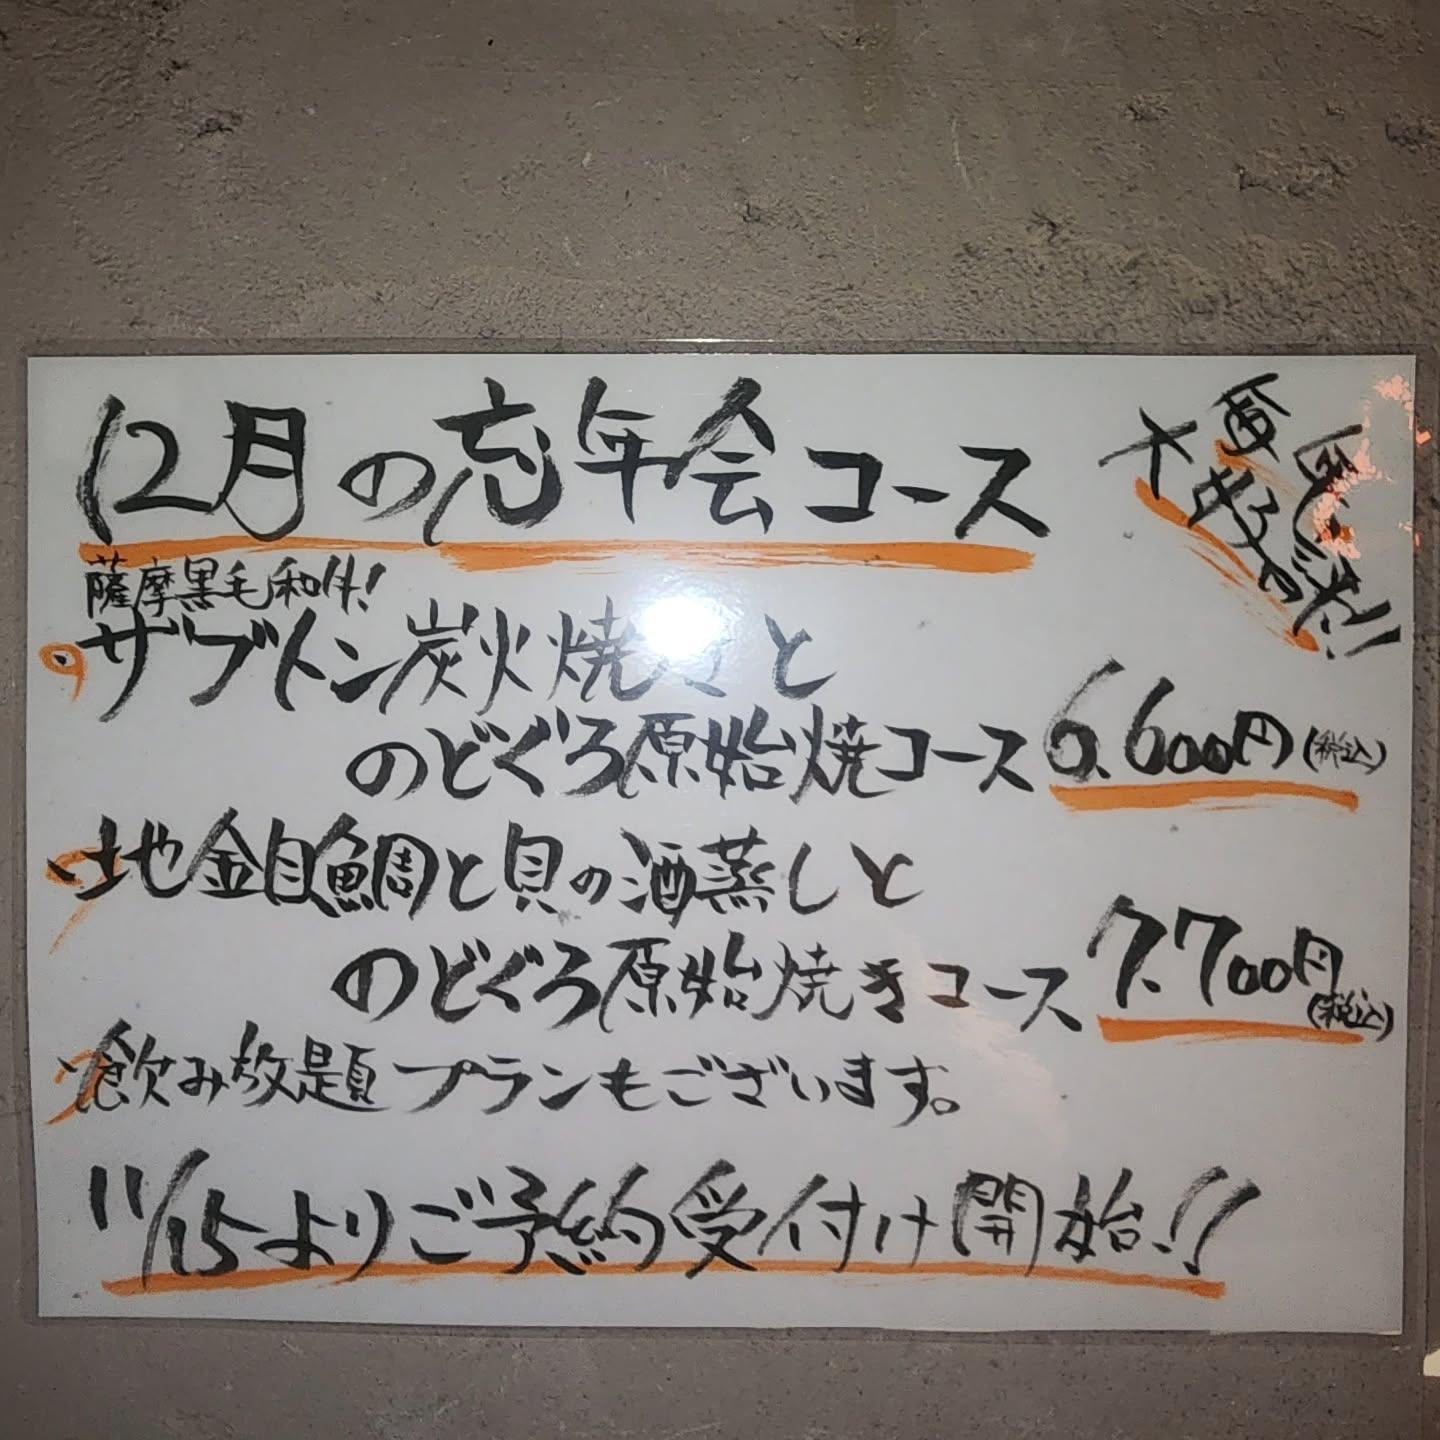 12月の忘年会コース
大好評
薩摩黒毛和牛!
・ザブトン炭火焼きと
のどぐろ原始焼コース 6.600円(税込)
・地金目鯛と貝の酒蒸しと
のどぐろ原始焼きコース 7.700円(税込)
・飲み放題プランもございます。
11/15よりご予約受付け開始!!